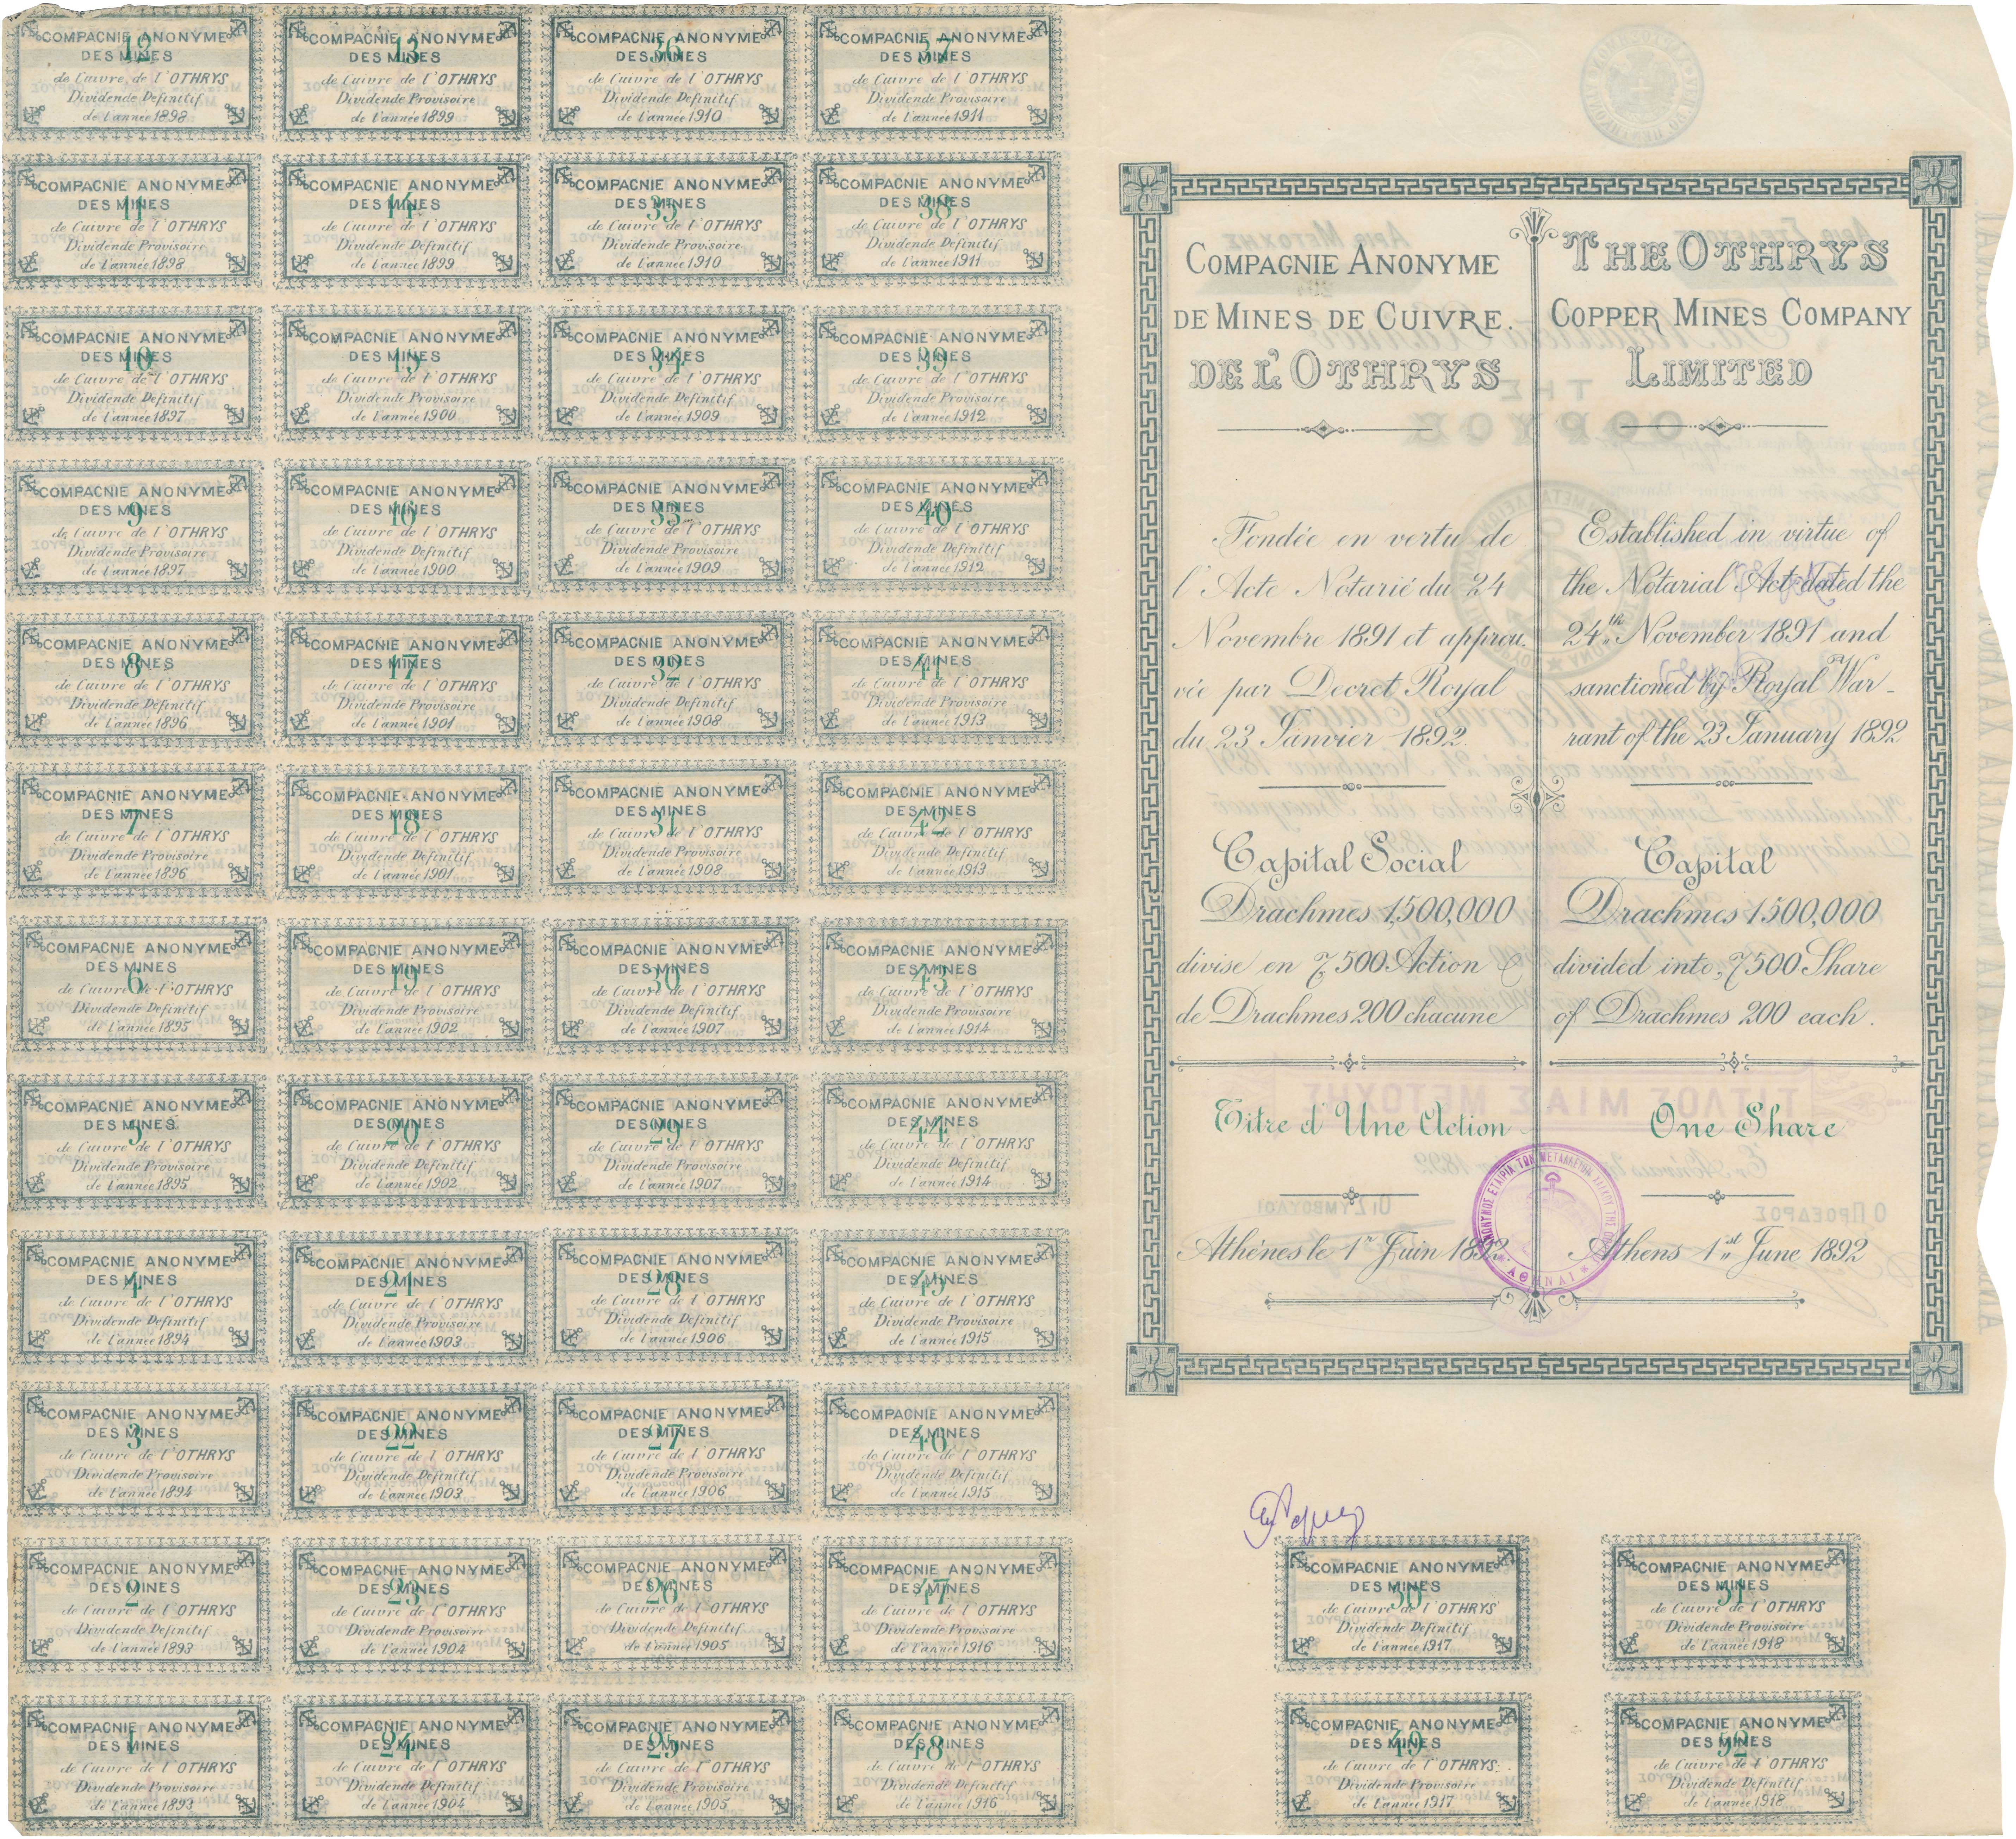 12
COMPAGNIE ANONYME
DES MINES
de Cuivre de l'OTHRYS
Dividende Definitif
de l'année 1898
13
COMPAGNIE ANONYME
DES MINES
de Cuivre de l'OTHRYS
Dividende Provisoire
de l'année 1899
36
COMPAGNIE ANONYME
DES MINES
de Cuivre de l'OTHRYS
Dividende Definitif
de l'année 1910
37
COMPAGNIE ANONYME
DES MINES
de Cuivre de l'OTHRYS
Dividende Provisoire
de l'année 1911
11
COMPAGNIE ANONYME
DES MINES
de Cuivre de l'OTHRYS
Dividende Provisoire
de l'année 1898
14
COMPAGNIE ANONYME
DES MINES
de Cuivre de l'OTHRYS
Dividende Definitif
de l'année 1899
35
COMPAGNIE ANONYME
DES MINES
de Cuivre de l'OTHRYS
Dividende Provisoire
de l'année 1910
38
COMPAGNIE ANONYME
DES MINES
de Cuivre de l'OTHRYS
Dividende Definitif
de l'année 1911
10
COMPAGNIE ANONYME
DES MINES
de Cuivre de l'OTHRYS
Dividende Definitif
de l'année 1897
15
COMPAGNIE ANONYME
DES MINES
de Cuivre de l'OTHRYS
Dividende Provisoire
de l'année 1900
34
COMPAGNIE ANONYME
DES MINES
de Cuivre de l'OTHRYS
Dividende Definitif
de l'année 1909
39
COMPAGNIE ANONYME
DES MINES
de Cuivre de l'OTHRYS
Dividende Provisoire
de l'année 1912
9
COMPAGNIE ANONYME
DES MINES
de Cuivre de l'OTHRYS
Dividende Provisoire
de l'année 1897
16
COMPAGNIE ANONYME
DES MINES
de Cuivre de l'OTHRYS
Dividende Definitif
de l'année 1900
33
COMPAGNIE ANONYME
DES MINES
de Cuivre de l'OTHRYS
Dividende Provisoire
de l'année 1909
40
COMPAGNIE ANONYME
DES MINES
de Cuivre de l'OTHRYS
Dividende Definitif
de l'année 1912
8
COMPAGNIE ANONYME
DES MINES
de Cuivre de l'OTHRYS
Dividende Definitif
de l'année 1896
17
COMPAGNIE ANONYME
DES MINES
de Cuivre de l'OTHRYS
Dividende Provisoire
de l'année 1901
32
COMPAGNIE ANONYME
DES MINES
de Cuivre de l'OTHRYS
Dividende Definitif
de l'année 1908
41
COMPAGNIE ANONYME
DES MINES
de Cuivre de l'OTHRYS
Dividende Provisoire
de l'année 1913
7
COMPAGNIE ANONYME
DES MINES
de Cuivre de l'OTHRYS
Dividende Provisoire
de l'année 1896
18
COMPAGNIE ANONYME
DES MINES
de Cuivre de l'OTHRYS
Dividende Definitif
de l'année 1901
31
COMPAGNIE ANONYME
DES MINES
de Cuivre de l'OTHRYS
Dividende Provisoire
de l'année 1908
42
COMPAGNIE ANONYME
DES MINES
de Cuivre de l'OTHRYS
Dividende Definitif
de l'année 1913
6
COMPAGNIE ANONYME
DES MINES
de Cuivre de l'OTHRYS
Dividende Definitif
de l'année 1895
19
COMPAGNIE ANONYME
DES MINES
de Cuivre de l'OTHRYS
Dividende Provisoire
de l'année 1902
30
COMPAGNIE ANONYME
DES MINES
de Cuivre de l'OTHRYS
Dividende Definitif
de l'année 1907
43
COMPAGNIE ANONYME
DES MINES
de Cuivre de l'OTHRYS
Dividende Provisoire
de l'année 1914
5
COMPAGNIE ANONYME
DES MINES
de Cuivre de l'OTHRYS
Dividende Provisoire
de l'année 1895
20
COMPAGNIE ANONYME
DES MINES
de Cuivre de l'OTHRYS
Dividende Definitif
de l'année 1902
29
COMPAGNIE ANONYME
DES MINES
de Cuivre de l'OTHRYS
Dividende Provisoire
de l'année 1907
44
COMPAGNIE ANONYME
DES MINES
de Cuivre de l'OTHRYS
Dividende Definitif
de l'année 1914
4
COMPAGNIE ANONYME
DES MINES
de Cuivre de l'OTHRYS
Dividende Definitif
de l'année 1894
21
COMPAGNIE ANONYME
DES MINES
de Cuivre de l'OTHRYS
Dividende Provisoire
de l'année 1903
28
COMPAGNIE ANONYME
DES MINES
de Cuivre de l'OTHRYS
Dividende Definitif
de l'année 1906
45
COMPAGNIE ANONYME
DES MINES
de Cuivre de l'OTHRYS
Dividende Provisoire
de l'année 1915
3
COMPAGNIE ANONYME
DES MINES
de Cuivre de l'OTHRYS
Dividende Provisoire
de l'année 1894
22
COMPAGNIE ANONYME
DES MINES
de Cuivre de l'OTHRYS
Dividende Definitif
de l'année 1903
27
COMPAGNIE ANONYME
DES MINES
de Cuivre de l'OTHRYS
Dividende Provisoire
de l'année 1906
46
COMPAGNIE ANONYME
DES MINES
de Cuivre de l'OTHRYS
Dividende Definitif
de l'année 1915
2
COMPAGNIE ANONYME
DES MINES
de Cuivre de l'OTHRYS
Dividende Definitif
de l'année 1893
23
COMPAGNIE ANONYME
DES MINES
de Cuivre de l'OTHRYS
Dividende Provisoire
de l'année 1904
26
COMPAGNIE ANONYME
DES MINES
de Cuivre de l'OTHRYS
Dividende Definitif
de l'année 1905
47
COMPAGNIE ANONYME
DES MINES
de Cuivre de l'OTHRYS
Dividende Provisoire
de l'année 1916
1
COMPAGNIE ANONYME
DES MINES
de Cuivre de l'OTHRYS
Dividende Provisoire
de l'année 1893
24
COMPAGNIE ANONYME
DES MINES
de Cuivre de l'OTHRYS
Dividende Definitif
de l'année 1904
25
COMPAGNIE ANONYME
DES MINES
de Cuivre de l'OTHRYS
Dividende Provisoire
de l'année 1905
48
COMPAGNIE ANONYME
DES MINES
de Cuivre de l'OTHRYS
Dividende Definitif
de l'année 1916
COMPAGNIE ANONYME
DE MINES DE CUIVRE.
DE L'OTHRYS
Fondée en vertu de
l'Acte Notarié du 24
Novembre 1891 et approu.
vée par Decret Royal
du 23 Janvier 1892.
Capital Social
Drachmes 1,500,000
divise en 7,500 Action
de Drachmes 200 chacune
Titre d'Une Action
Athènes le 1r Juin 1892.
THE OTHRYS
COPPER MINES COMPANY
LIMITED
Established in virtue of
the Notarial Act dated the
24th November 1891 and
sanctioned by Royal War-
rant of the 23 January 1892
Capital
Drachmes 1.500,000
divided into 7500 Share
of Drachmes 200 each.
One Share
Athens 1st June 1892
ΑΘΗΝΑΙ
50
COMPAGNIE ANONYME
DES MINES
de Cuivre de l'OTHRYS
Dividende Definitif
de l'année 1917
51
COMPAGNIE ANONYME
DES MINES
de Cuivre de l'OTHRYS
Dividende Provisoire
de l'année 1918
49
COMPAGNIE ANONYME
DES MINES
de Cuivre de l'OTHRYS
Dividende Provisoire
de l'année 1917
52
COMPAGNIE ANONYME
DES MINES
de Cuivre de l'OTHRYS
Dividende Definitif
de l'année 1918